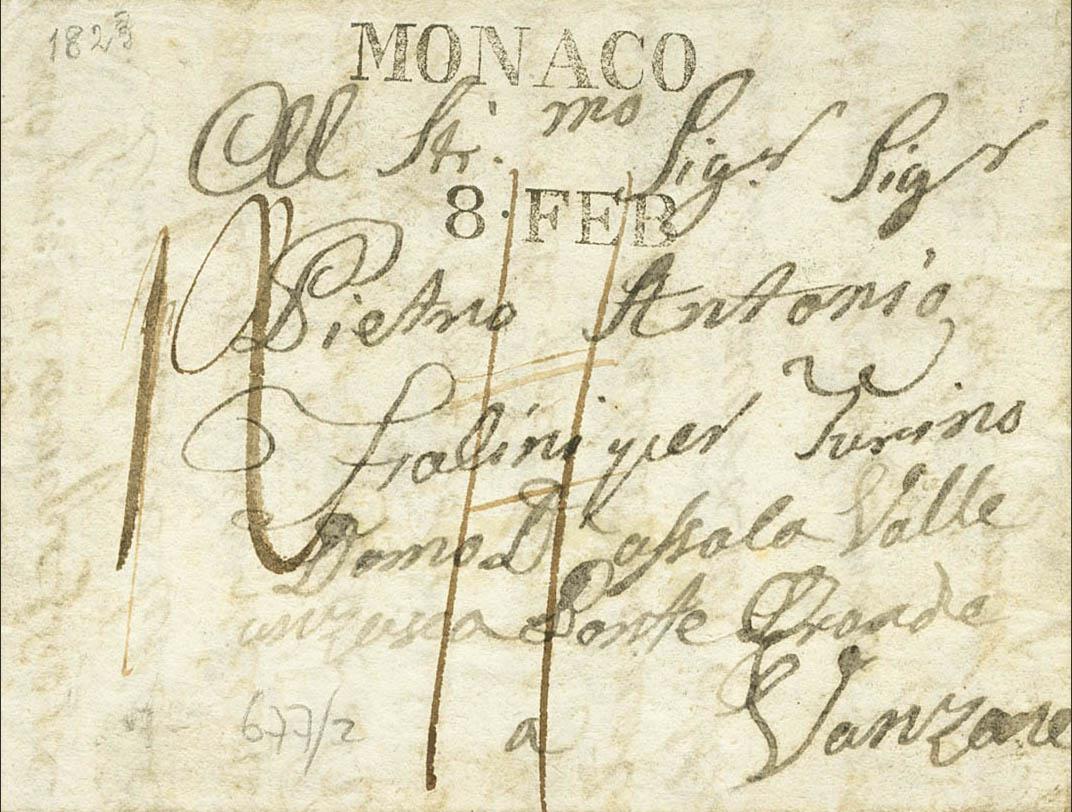 1823
MONACO
All Str. mo Sigr Sigr
8 FEB
Pietro Antonio
Fralini per Turino
Domo Dassala Valle
anzasca Ponte Grande
677/2 a Vanzone